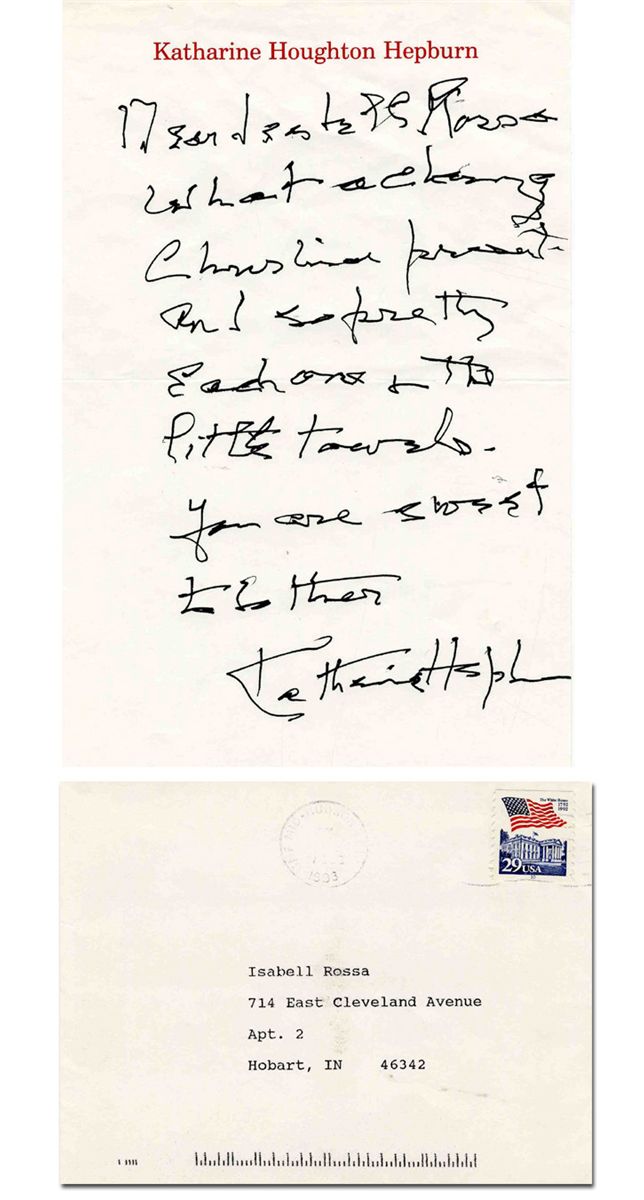 Katharine Houghton Hepburn
Dear Isabell Rossa
What a charming
Christmas present -
And so pretty
Each one & the
little towels -
You are sweet
Katharine Hepburn
1993
The White House
1792 1992
29 USA
Isabell Rossa
714 East Cleveland Avenue
Apt. 2
Hobart, IN 46342